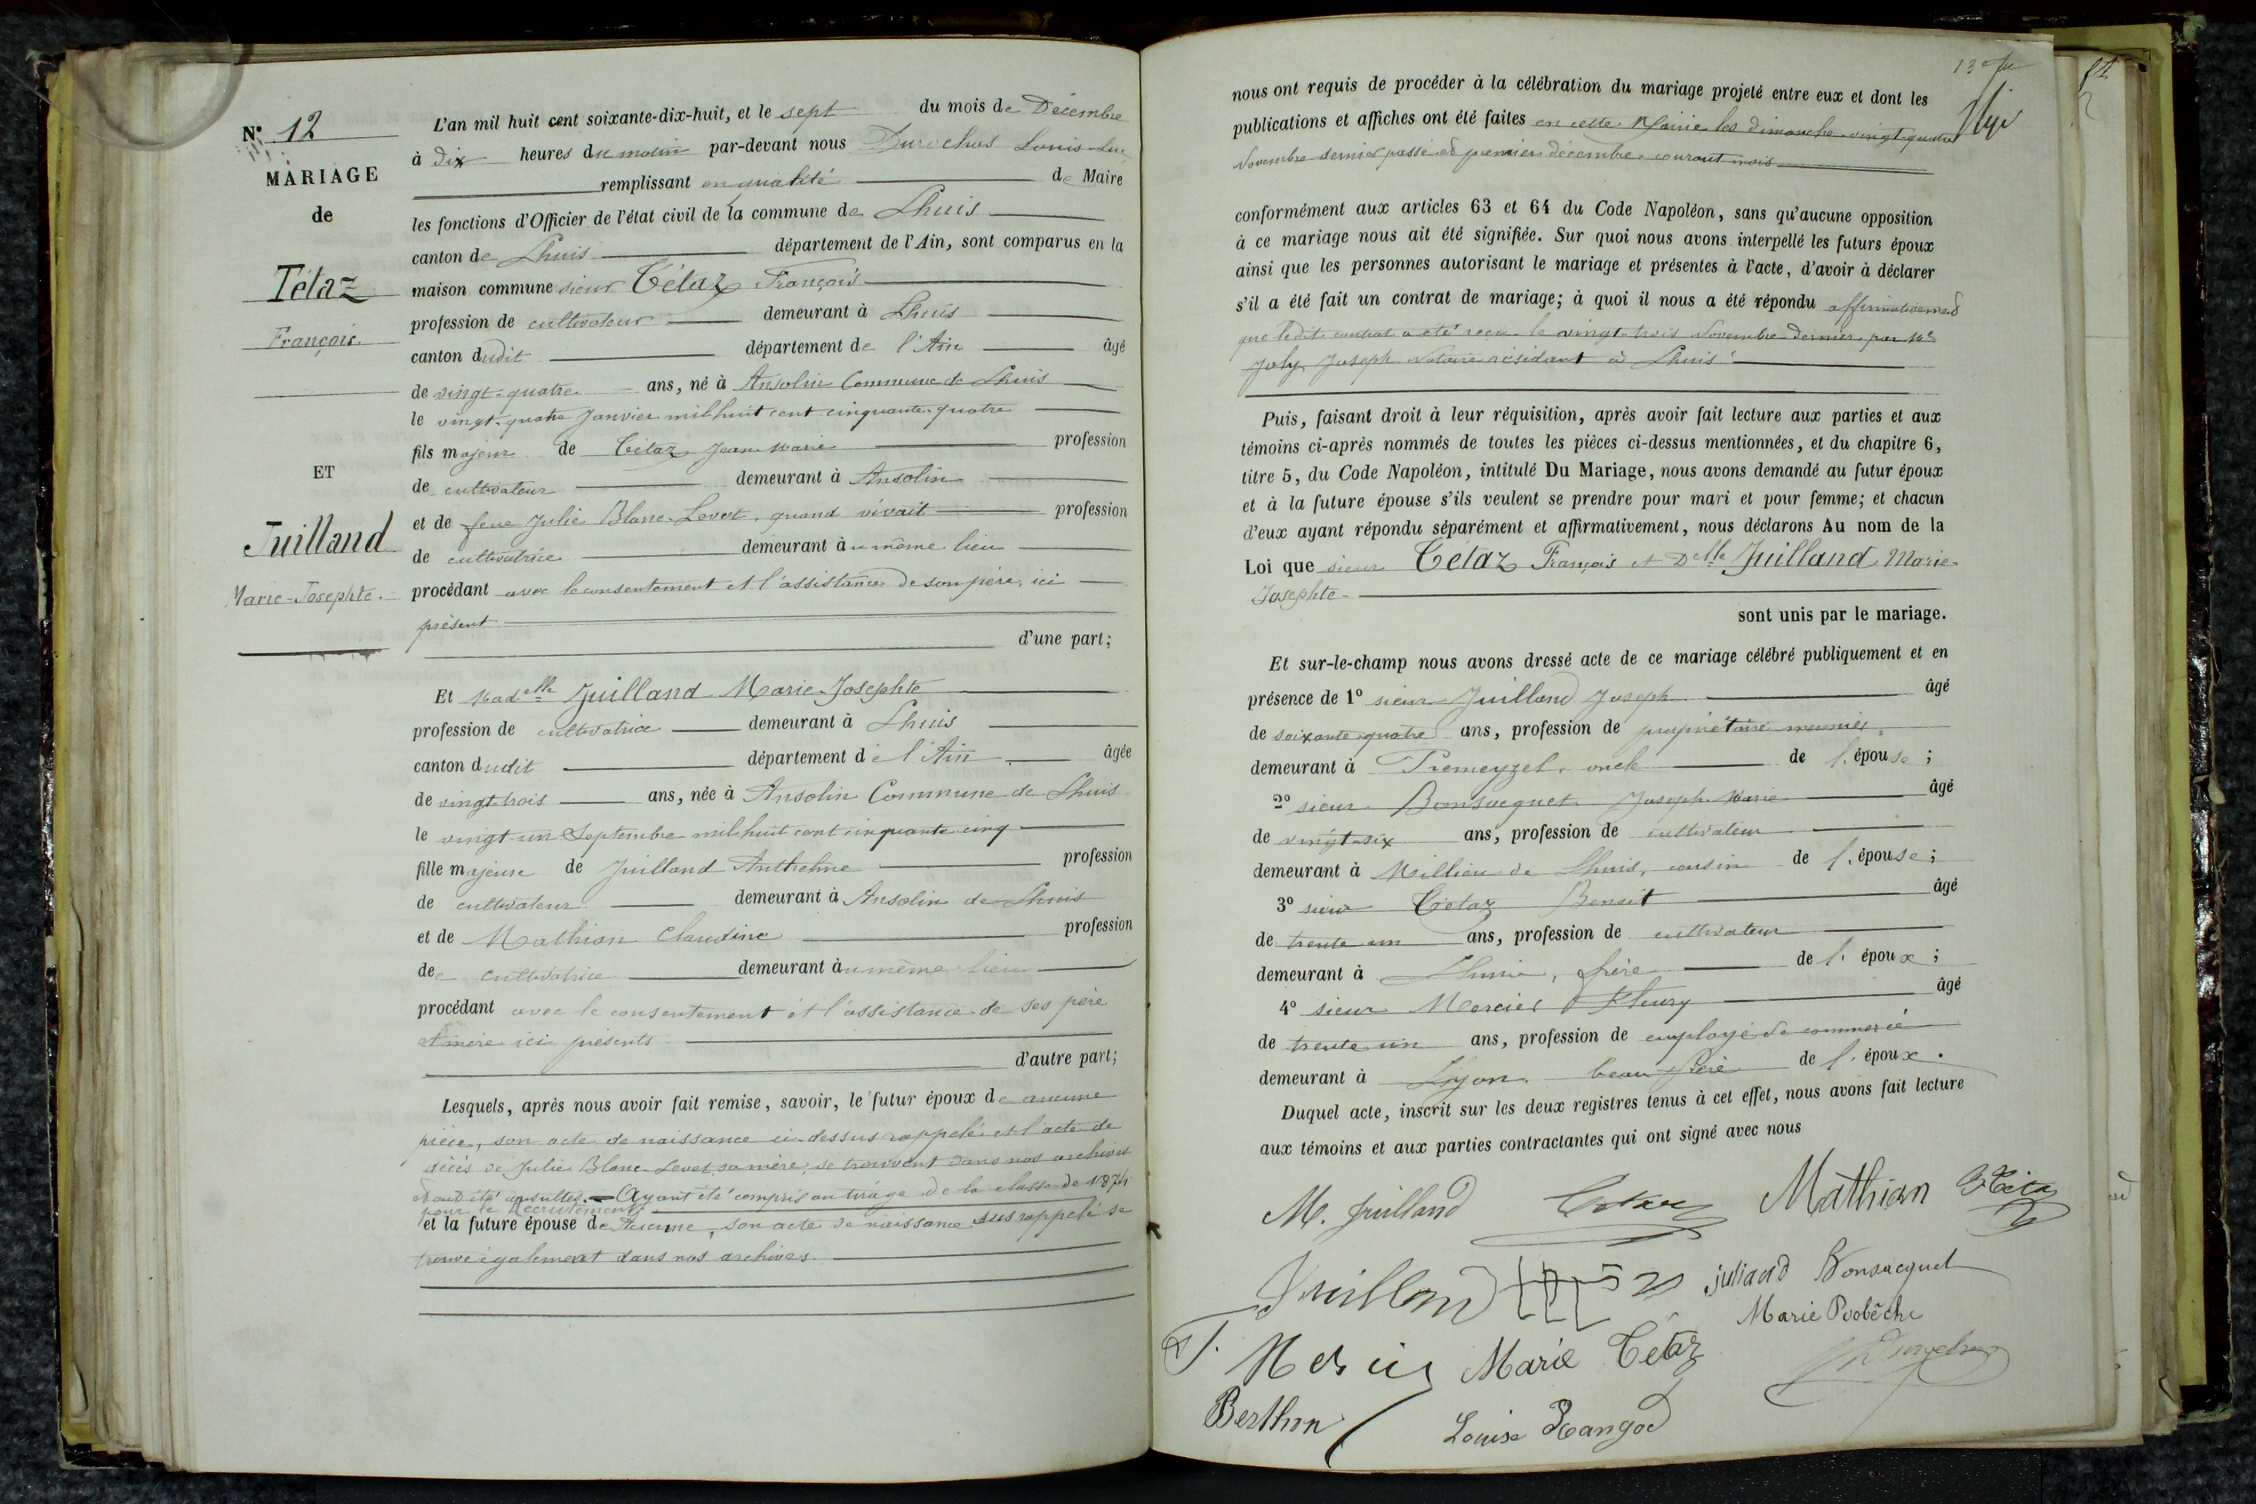 N° 12
MARIAGE
de
Tétaz
François
ET
Juilland
Marie-Josephte.
L'an mil huit cent soixante-dix-huit, et le sept du mois de Décembre
à dix heures du matin par-devant nous Durochas Louis-Luc
remplissant en qualité de Maire
les fonctions d'Officier de l'état civil de la commune de Lhuis
canton de Lhuis département de l'Ain, sont comparus en la
maison commune sieur Tétaz François
profession de cultivateur demeurant à Lhuis
canton dudit département de l'Ain âgé
de vingt-quatre ans, né à Ansolin Commune de Lhuis
le vingt-quatre Janvier mil huit cent cinquante-quatre
fils majeur de Tétaz Jean-Marie profession
de cultivateur demeurant à Ansolin
et de feue Julie Blanc-Levet, quand vivait profession
de cultivatrice demeurant au même lieu
procédant avec le consentement et l'assistance de son père, ici
présent
d'une part;
Et Madelle Juilland Marie-Josephte
profession de cultivatrice demeurant à Lhuis
canton dudit département de l'Ain âgée
de vingt trois ans, née à Ansolin Commune de Lhuis
le vingt-un Septembre mil huit cent cinquante-cinq
fille majeure de Juilland Anthelme profession
de cultivateur demeurant à Ansolin de Lhuis
et de Mathian Claudine profession
de cultivatrice demeurant au même lieu
procédant avec le consentement et l'assistance de ses père
et mère ici présents
d'autre part;
Lesquels, après nous avoir fait remise, savoir, le futur époux de aucune
pièce, son acte de naissance ci-dessus rappelé et l'acte de
décès de Julie Blanc-Levet, sa mère, se trouvent dans nos archives
et ont été consultés. — Ayant été compris au tirage de la classe de 1874
pour le Recrutement
et la future épouse de Aucune, son acte de naissance sus rappelé se
trouve également dans nos archives
nous ont requis de procéder à la célébration du mariage projeté entre eux et dont les
publications et affiches ont été faites en cette Mairie les dimanche vingt-quatre
Novembre dernier passé et premier décembre courant mois
conformément aux articles 63 et 64 du Code Napoléon, sans qu'aucune opposition
à ce mariage nous ait été signifiée. Sur quoi nous avons interpellé les futurs époux
ainsi que les personnes autorisant le mariage et présentes à l'acte, d'avoir à déclarer
s'il a été fait un contrat de mariage; à quoi il nous a été répondu affirmativement
que ledit contrat a été reçu le vingt-trois Novembre dernier par Me
Joly Joseph Notaire résidant à Lhuis
Puis, faisant droit à leur réquisition, après avoir fait lecture aux parties et aux
témoins ci-après nommés de toutes les pièces ci-dessus mentionnées, et du chapitre 6,
titre 5, du Code Napoléon, intitulé Du Mariage, nous avons demandé au futur époux
et à la future épouse s'ils veulent se prendre pour mari et pour femme; et chacun
d'eux ayant répondu séparément et affirmativement, nous déclarons Au nom de la
Loi que sieur Tétaz François et Delle Juilland Marie-
Josephte
sont unis par le mariage.
Et sur-le-champ nous avons dressé acte de ce mariage célébré publiquement et en
présence de 1° sieur Juilland Joseph âgé
de soixante-quatre ans, profession de propriétaire meunier,
demeurant à Premeyzel, oncle de l'épouse;
2° sieur Bonsacquet Joseph-Marie âgé
de vingt-six ans, profession de cultivateur
demeurant à Millieu de Lhuis, cousin de l'épouse;
3° sieur Tétaz Benoît âgé
de trente un ans, profession de cultivateur
demeurant à Lhuis, frère de l'époux;
4° sieur Mercier Fleury âgé
de trente un ans, profession de employé de commerce
demeurant à Lyon, beau-frère de l'époux.
Duquel acte, inscrit sur les deux registres tenus à cet effet, nous avons fait lecture
aux témoins et aux parties contractantes qui ont signé avec nous
M. Juilland Tétaz Mathian
Juilland juliand Bonsacquet
Marie Pobêche
F. Mercier Marie Tétaz
Berthon Louise Rangod